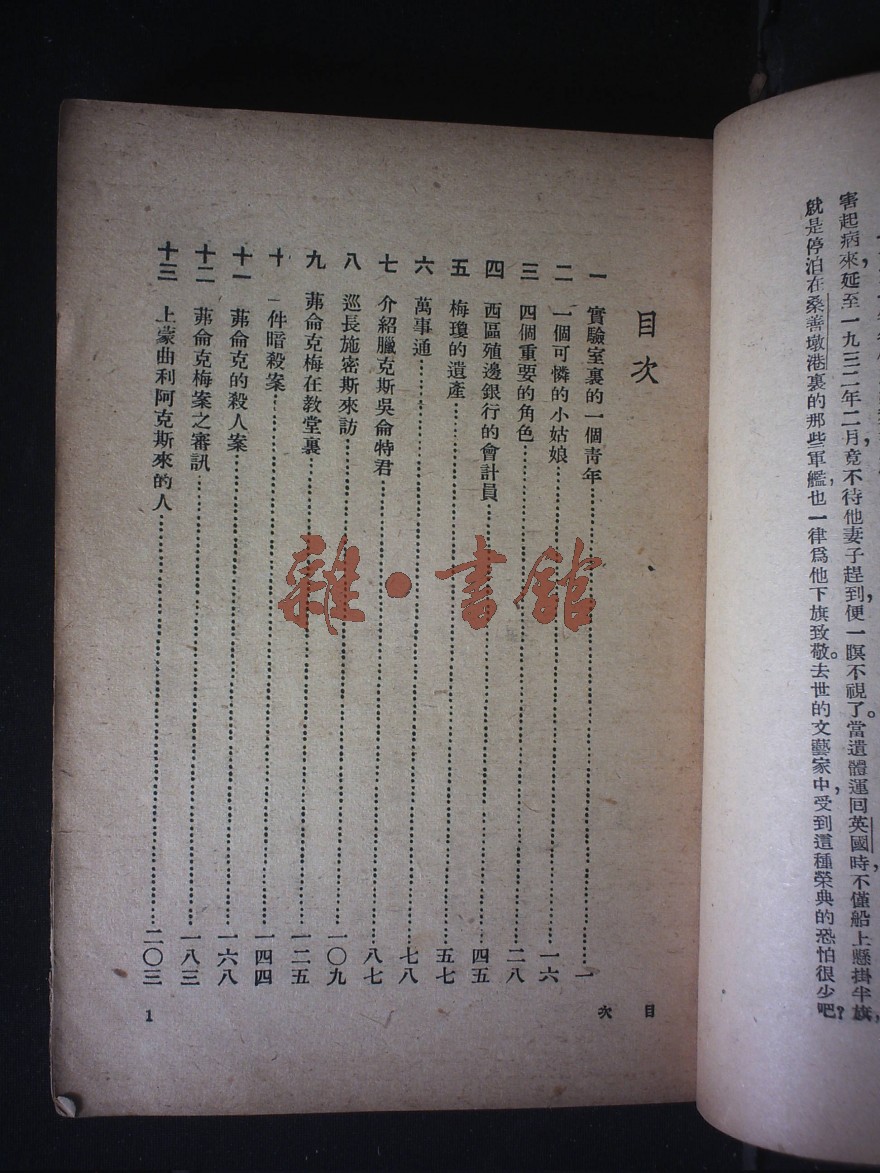 害起病來，延至一九三二年二月，竟不待他妻子趕到，便一瞑不視了。當遺體運回英國時，不僅船上懸掛半旗，
就是停泊在桑善墩港裏的那些軍艦，也一律爲他下旗致敬。去世的文藝家中，受到這種榮典的恐怕很少吧？
目次
一 實驗室裏的一個青年 一
二 一個可憐的小姑娘 一六
三 四個重要的角色 二八
四 西區殖邊銀行的會計員 四五
五 梅瓊的遺產 五七
六 萬事通 七八
七 介紹臘克斯吳侖特君 八七
八 巡長施密斯來訪 一〇九
九 茀侖克梅在教堂裏 一二五
十 一件暗殺案 一四四
十一 茀侖克的殺人案 一六八
十二 茀侖克梅案之審訊 一八三
十三 上蒙曲利阿克斯來的人 二〇三
目次
1
雜·書館